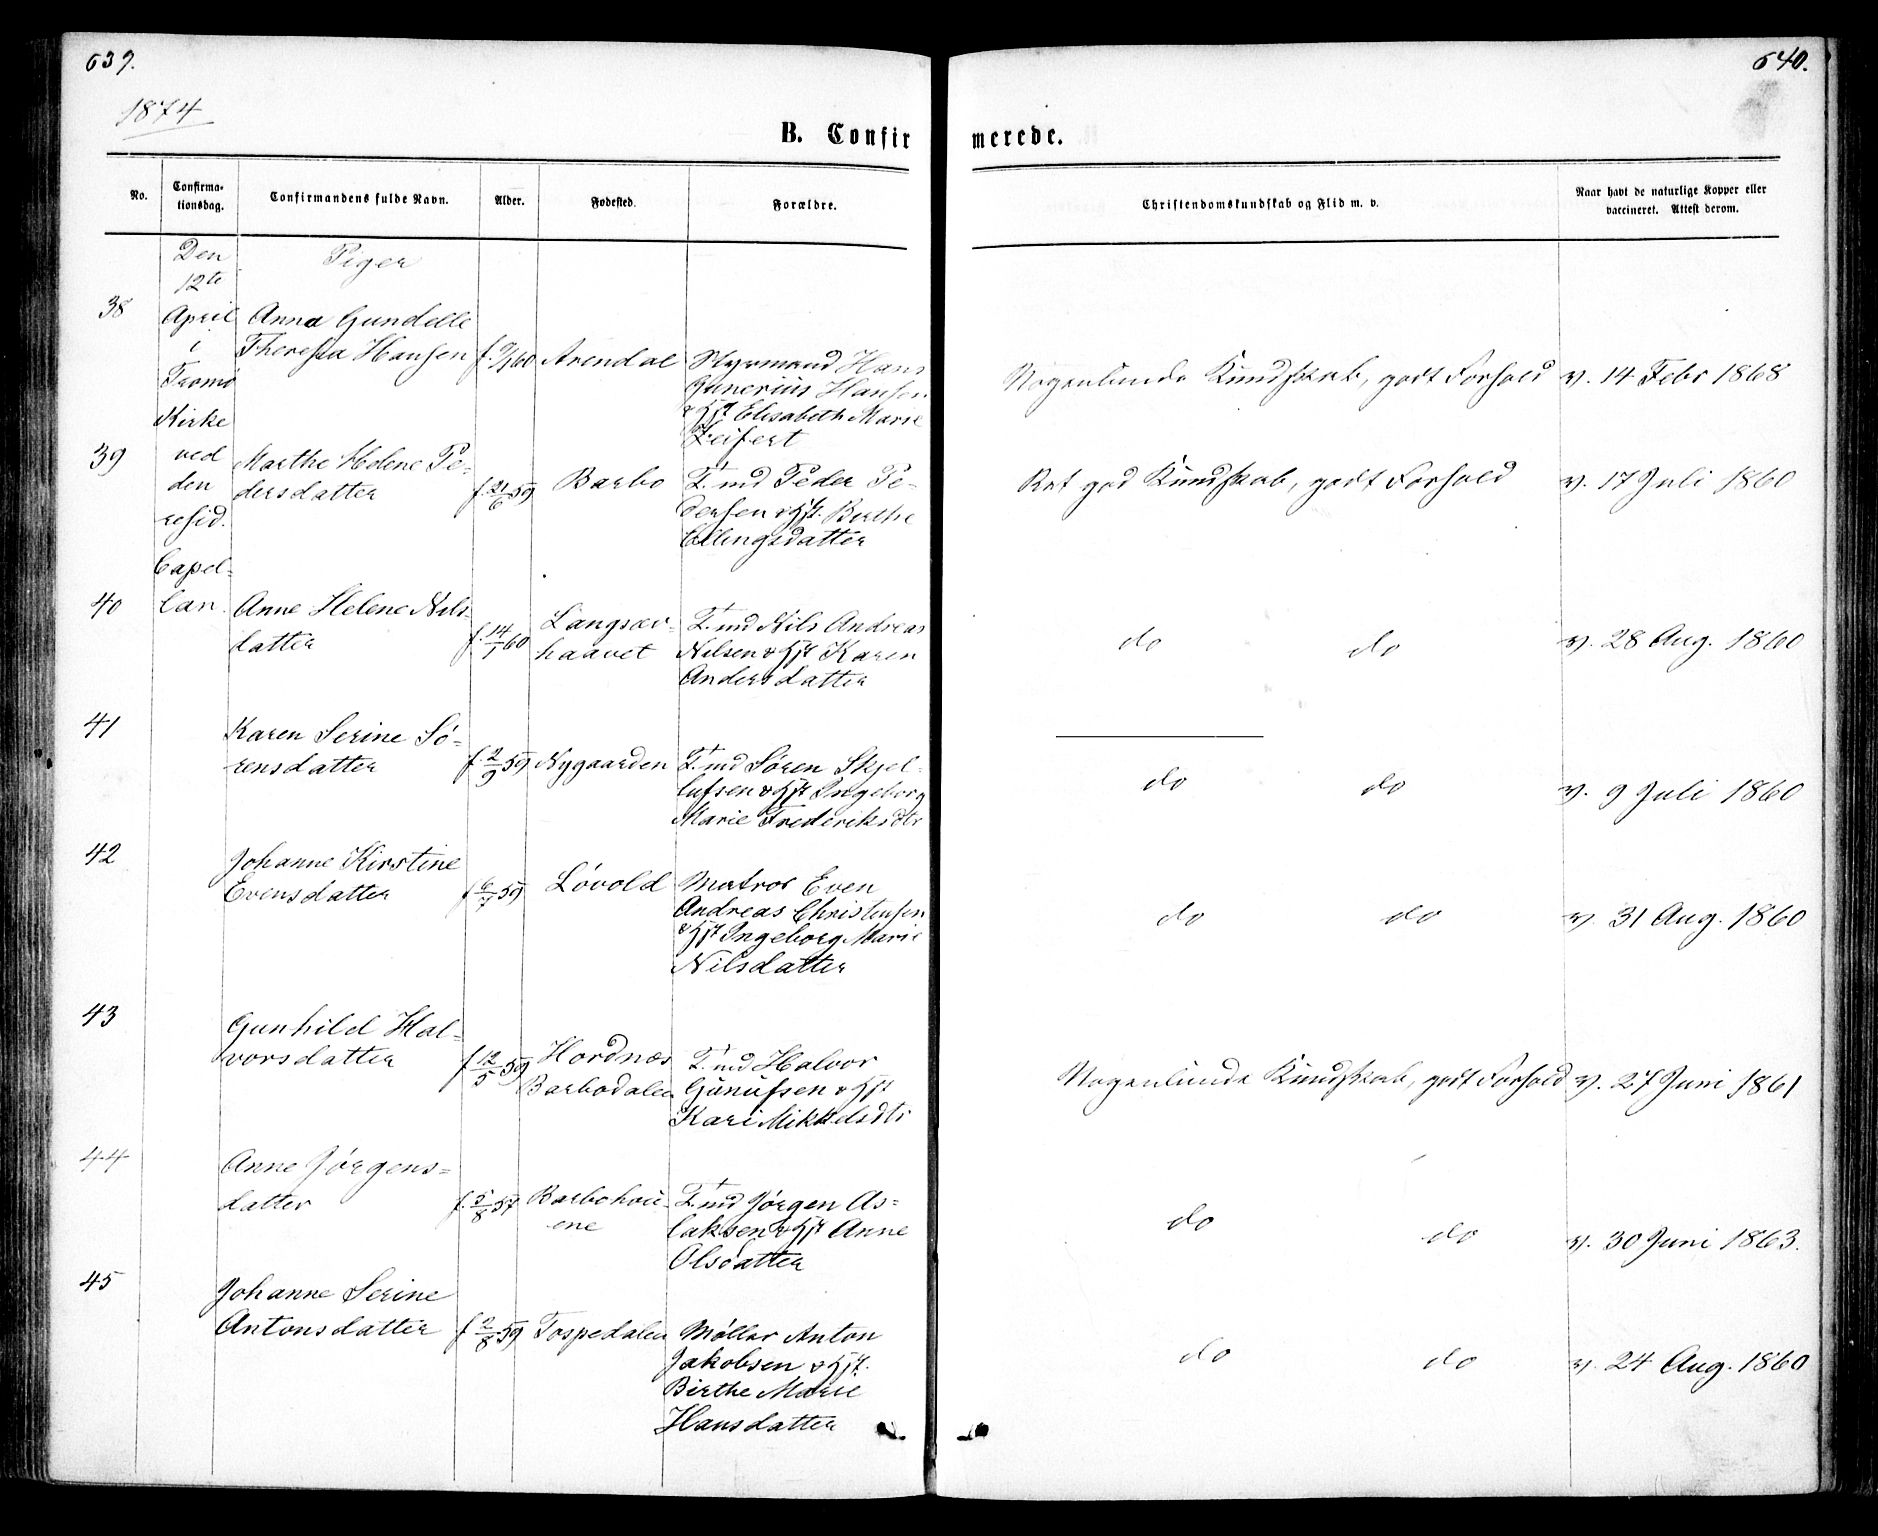 639.
640.
1874
B. Confirmerede.
No.
Confirmationsdag.
Confirmandens fulde Navn.
Alder.
Fødested.
Forældre.
Christendomskundskab og Flid m. v.
Naar havt de naturlige Kopper eller
vaccineret. Attest derom.
Den
12te
April
i
Tromø
Kirke
ved
den
resid.
Capel-
lan.
Piger
38
Anna Gundelle
Theresia Hansen
Arendal
Styrmand Hans
Gunerius Hansen
& Hst Elisabeth Marie
Zeifert
Nogenlunde Kundskab, godt Forhold
v. 14 Febr 1868
39
Marthe Helene Pe-
dersdatter
f. 21/6 59
Barbo
T.md Peder Pe-
dersen & Hst. Birthe
Ellingsdatter
Ret god Kundskab, godt Forhold
v. 17 Juli 1860
40
Anne Helene Nils-
datter
f. 14/1 60
Langsæv-
haavet
T.md Nils Andreas
Nilsen & Hst Karen
Andersdatter
do do
v. 28 Aug. 1860
41
Karen Serine Sø-
rensdatter
f. 2/9 59
Nygaarden
T.md Søren Skjel-
lufsen & Hst Ingeborg
Marie Frederiksdtr
do do
v. 9 Juli 1860
42
Johanne Kirstine
Evensdatter
f 6/7 59
Løvold
Matros Even
Andreas Christensen
& Hst Ingeborg Marie
Nilsdatter
do do
v. 31 Aug. 1860
43
Gunhild Hal-
vorsdatter
f 12/5 59
Hordnæs
Barbodalen
T.md Halvor
Gunufsen & Hst
Kari Mikkelsdtr
Nogenlunde Kundskab, godt Forhold
v. 27 Juni 1861
44
Anne Jørgens-
datter
f. 5/8 57
Barbohei-
ene
T.md Jørgen As-
laksen & Hst Anne
Olsdatter
do do
v. 30 Juni 1863.
45
Johanne Serine
Antonsdatter
f 2/8 59
Tospedalen
Møller Anton
Jakobsen & Hst.
Birthe Marie
Hansdatter
do do
v. 24 Aug. 1860